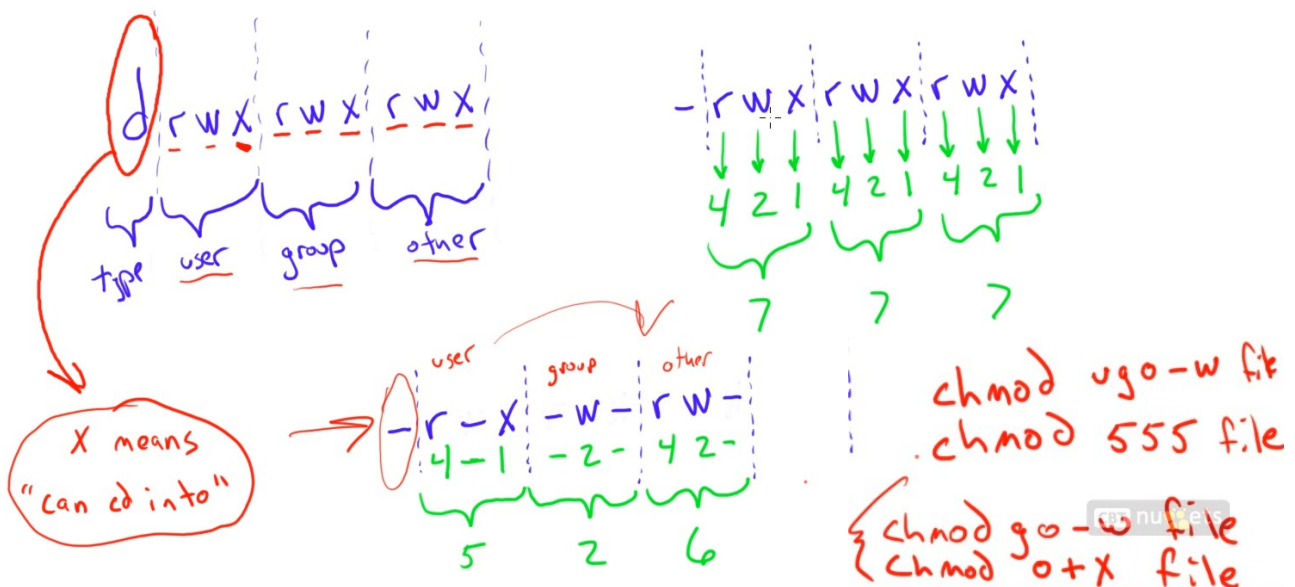 d rwx rwx rwx
type user group other
x means
"can cd into"
- rwx rwx rwx
421 421 421
7 7 7
user group other
- r-x -w- rw-
4-1 -2- 42-
5 2 6
chmod ugo-w file
chmod 555 file
chmod go-w file
chmod o+x file
CBT nuggets